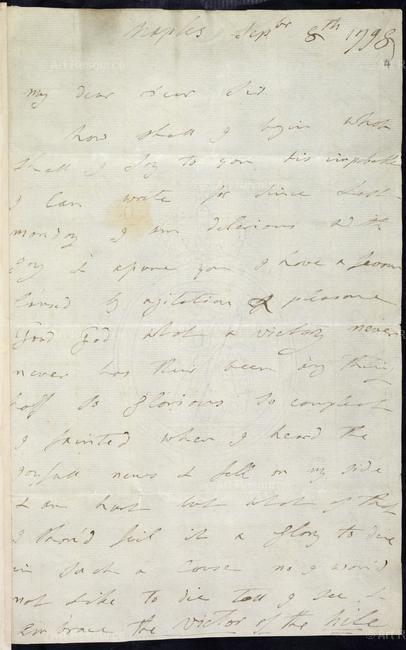 Naples Sepbr 8th 1798
4
my dear dear Sir
how shall I begin what
shall I say to you tis impossible
I can write for since last
monday I am delerious with
joy & assure you I have a fevour
caused by agitation & pleasure
Good God what a victory never
never has their been any thing
half so glorious so compleat
I fainted when I heard the
joyfull news & fell on my side
& am hurt but what of that
I shou'd feil it a glory to die
in such a cause no I wou'd
not like to die till I see &
embrace the victor of the nile
© Art Resource